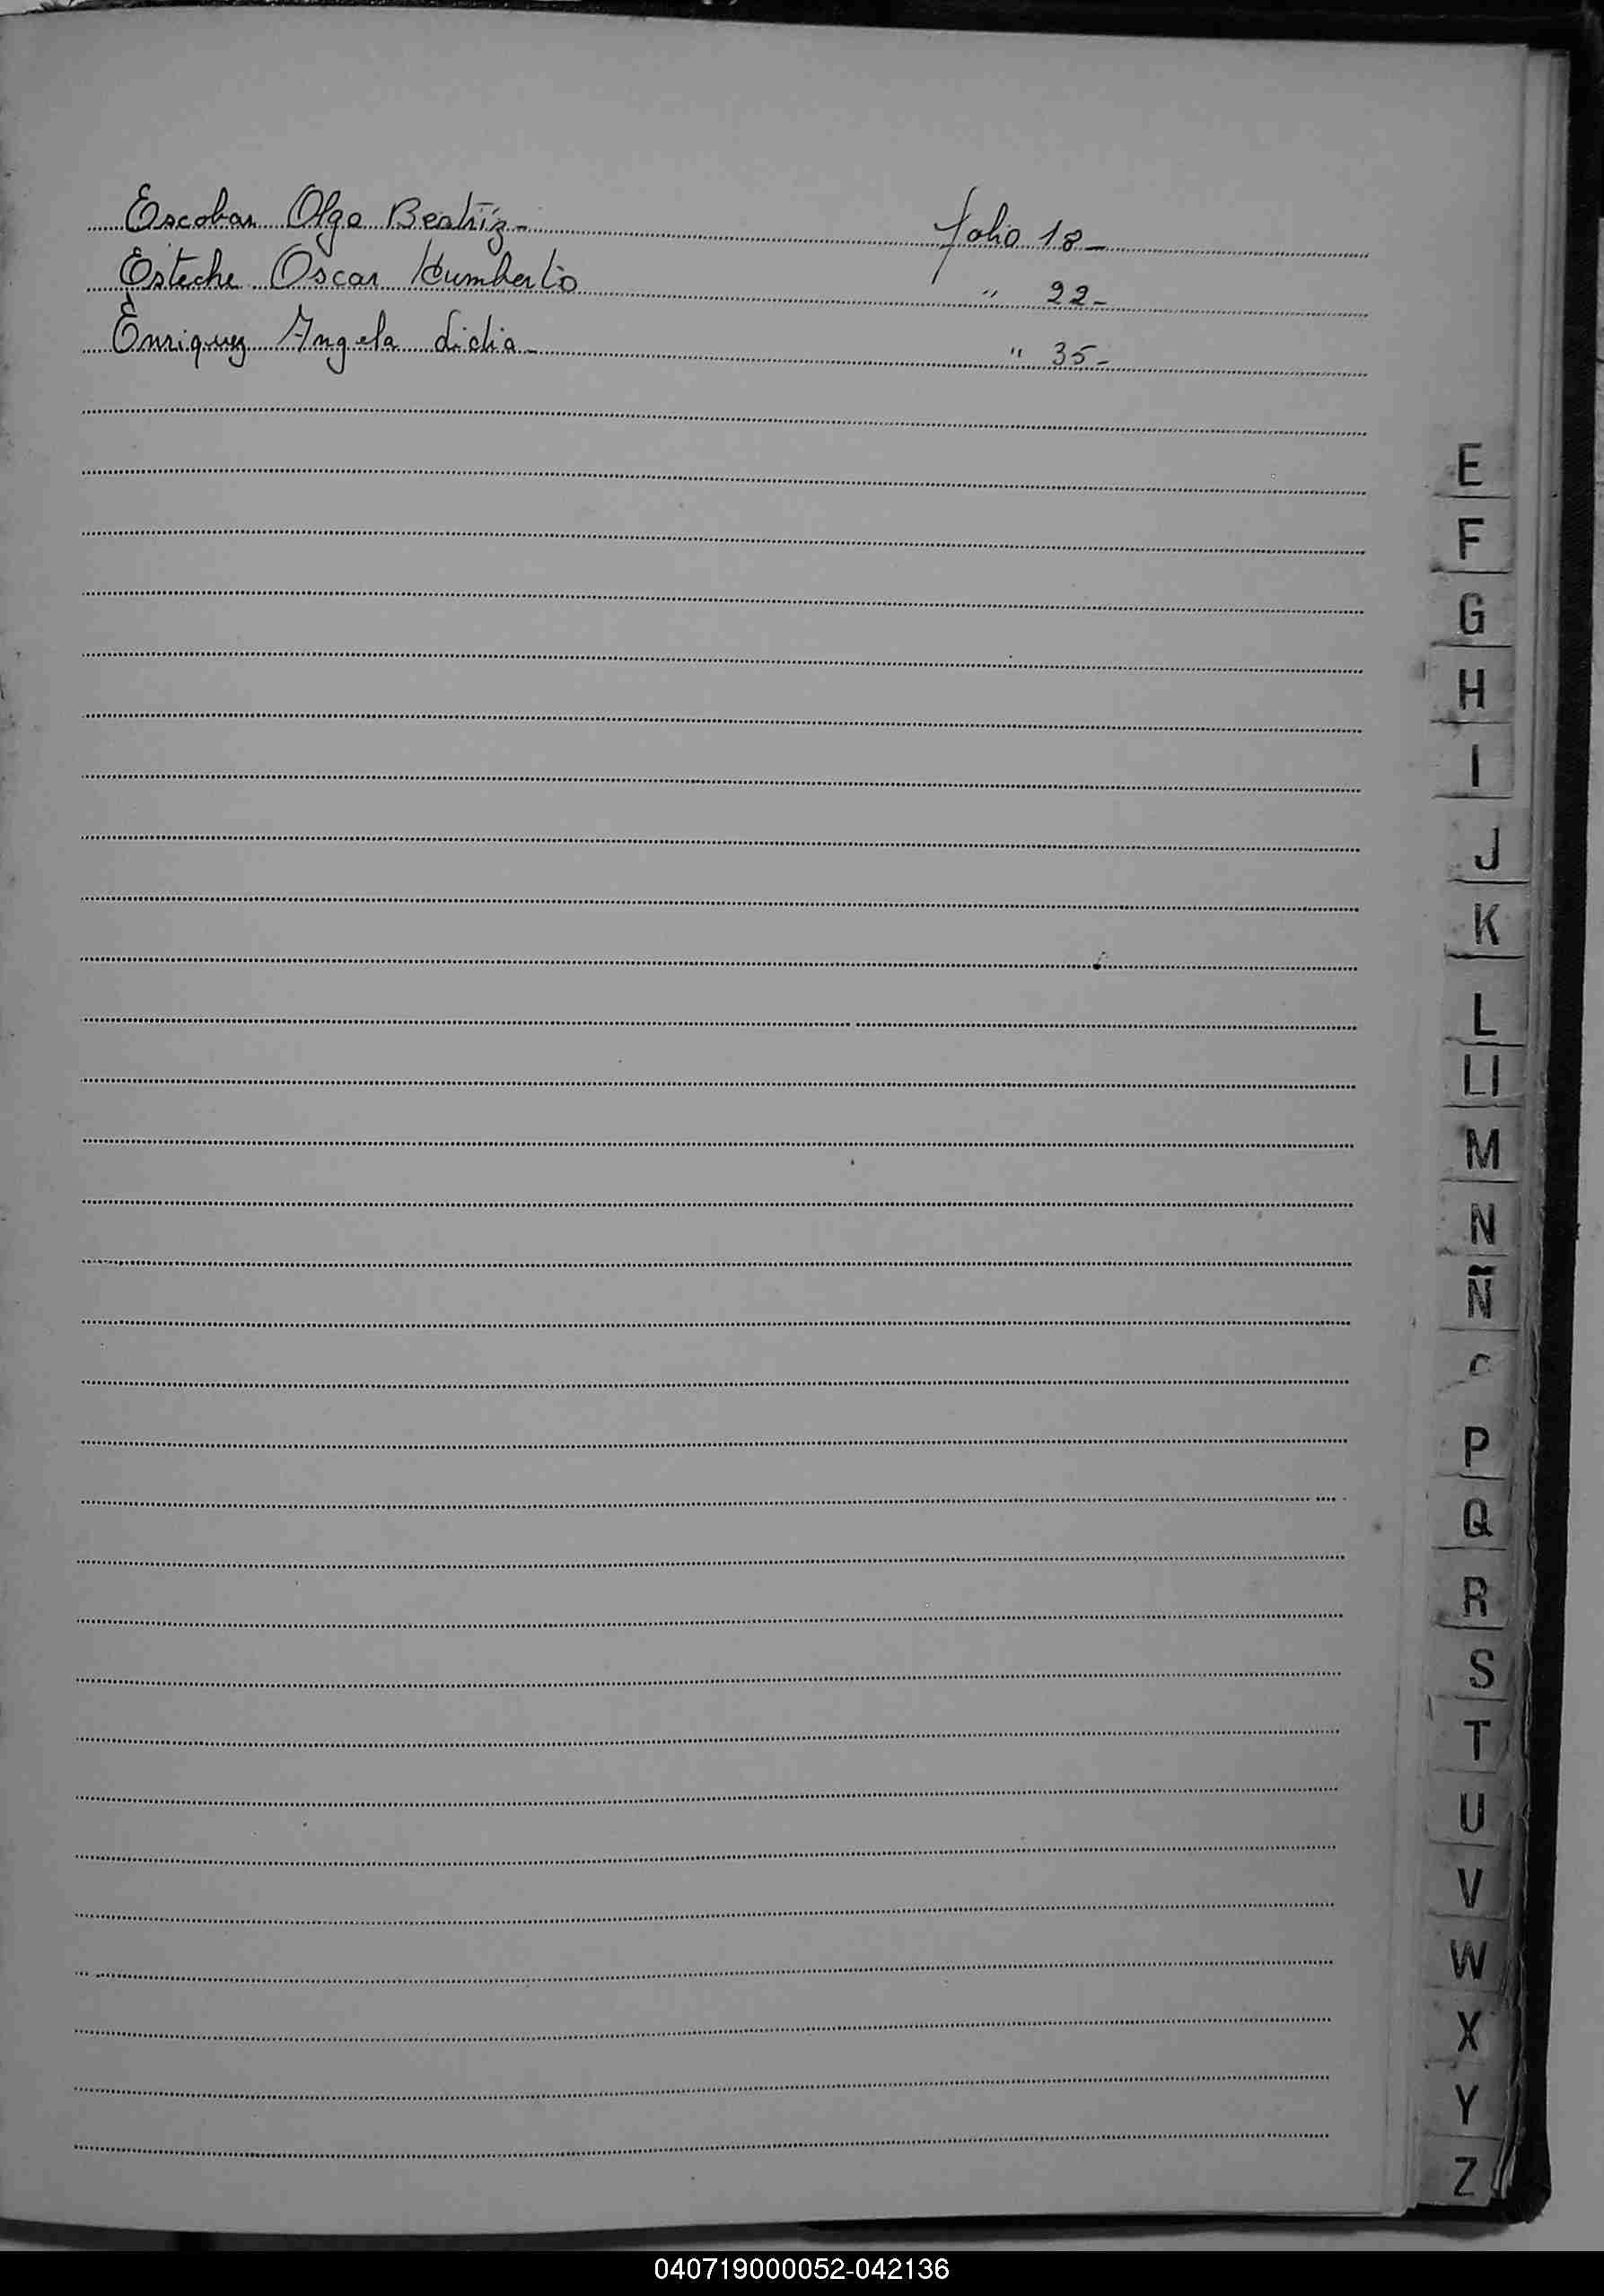 Escobar Olga Beatriz- folio 18-
Esteche Oscar Humberto " 22-
Enriquez Angela Lidia- " 35-
E
F
G
H
I
J
K
L
Ll
M
N
Ñ
P
Q
R
S
T
U
V
W
X
Y
Z
040719000052-042136